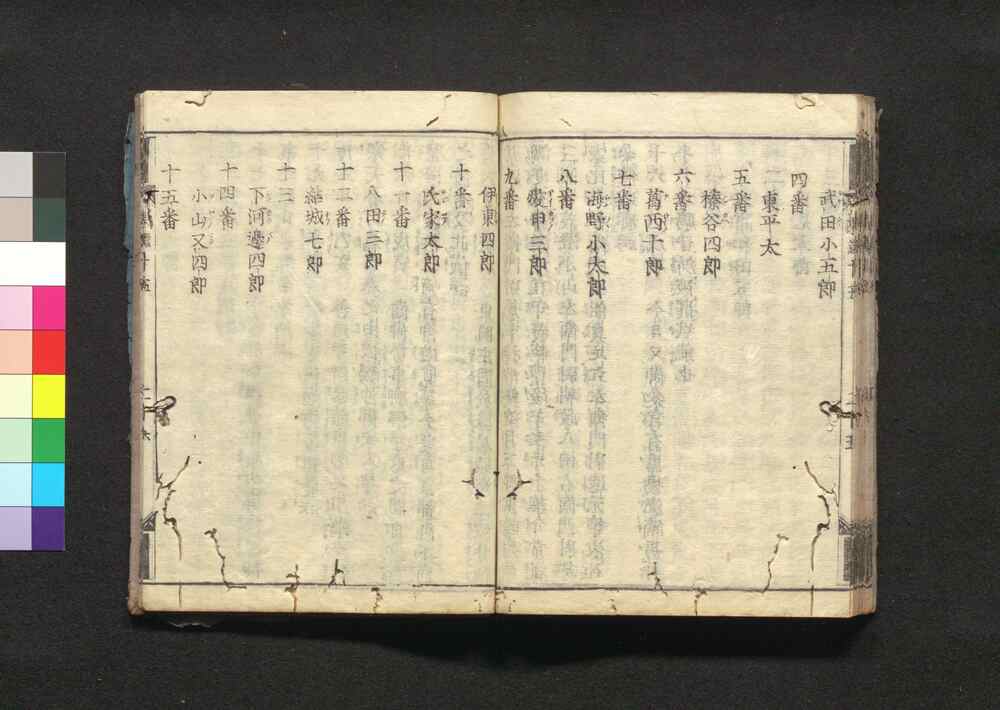 武田小五郎
四番
東平太
五番
榛谷四郎
六番
葛西十郎
七番
海野小太郎
八番
愛甲三郎
九番
伊東四郎
十番
氏家太郎
十一番
八田三郎
十二番
結城七郎
十三
下河邊四郎
十四番
小山又四郎
十五番